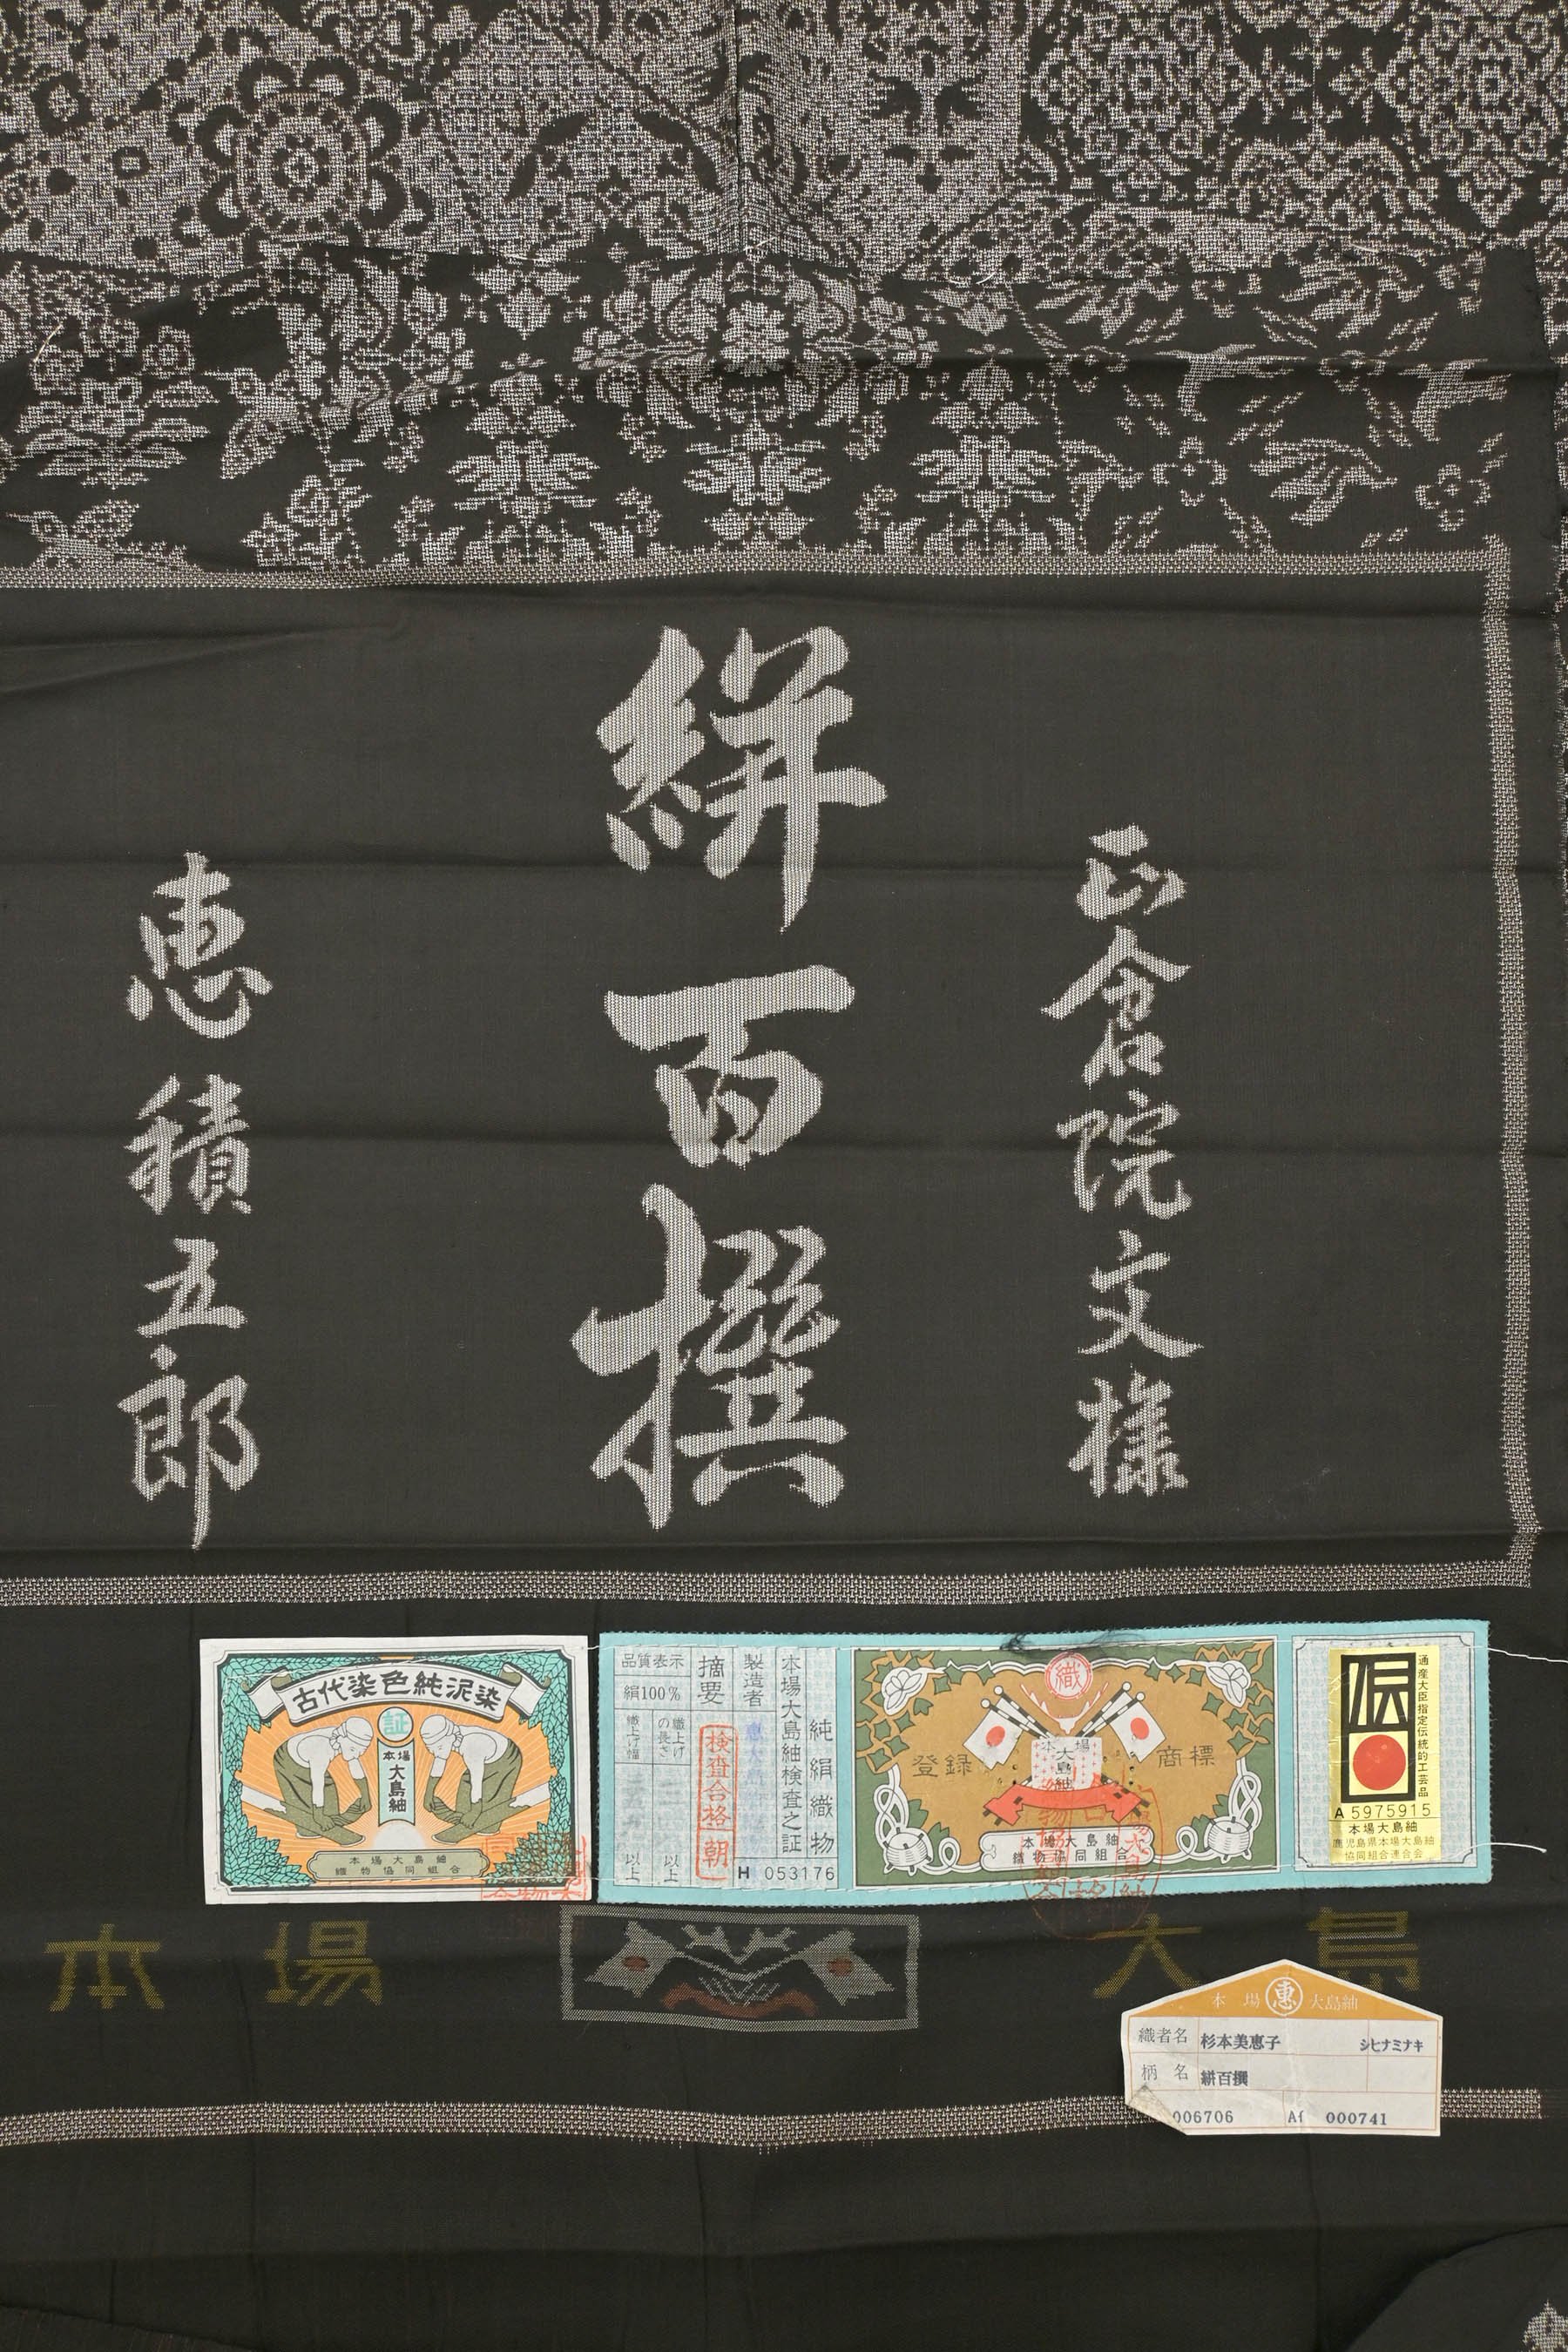 正倉院文様
絣百撰
恵積五郎
古代染色純泥染
証
本場
大島紬
本場大島紬
織物協同組合
純絹織物
本場大島紬検査之証
製造者
摘要
検査合格
朝
品質表示
絹100%
織上げ
の長さ
以上
織上げ幅
以上
H 053176
織
登録
商標
本場
大島
紬
本場大島紬
織物協同組合
伝
通産大臣指定伝統的工芸品
A 5975915
本場大島紬
鹿児島県本場大島紬
協同組合連合会
本場
大島
本場 恵 大島紬
織者名 杉本美恵子 シヒナミナキ
柄名 絣百撰
006706 000741